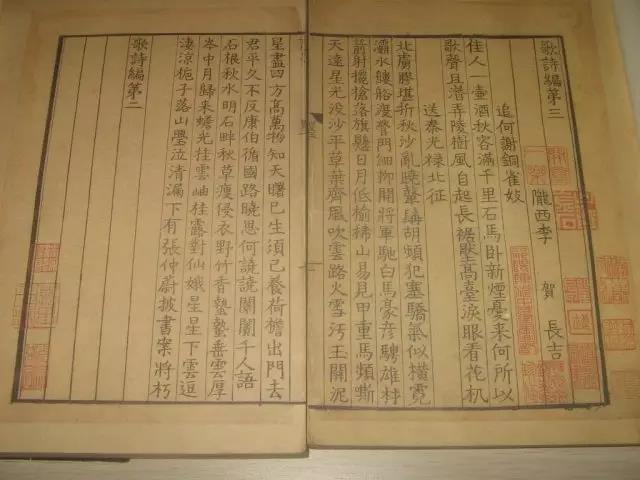 歌詩編第三
隴西李賀長吉
追何謝銅雀妓
佳人一壷酒秋容滿千里石馬臥新煙憂来何所以
歌聲且潛弄陵樹風自起長裾壓高臺淚眼看花机
送秦光禄北征
北虜膠堪折秋沙亂曉鼙髯胡頻犯塞驕氣似横霓
灞水樓船渡營門細栁開將軍馳白馬豪彦騁雄材
箭射攙搶落旗懸日月低榆稀山易見甲重馬頻嘶
天遠星光没沙平草葉齊風吹雲路火雪汚玉關泥
星盡四方高萬物知天曙己生須己養荷擔出門去
君平久不反康伯循國路曉思何譊譊闤闠千人語
石根秋水明石畔秋草瘦侵衣野竹香蟄蟄垂葉厚
岑中月歸来蟾光桂雲岫桂露對仙娥星星下雲逗
淒涼栀子落山璺泣清漏下有張仲蔚披書案將朽
歌詩編第二